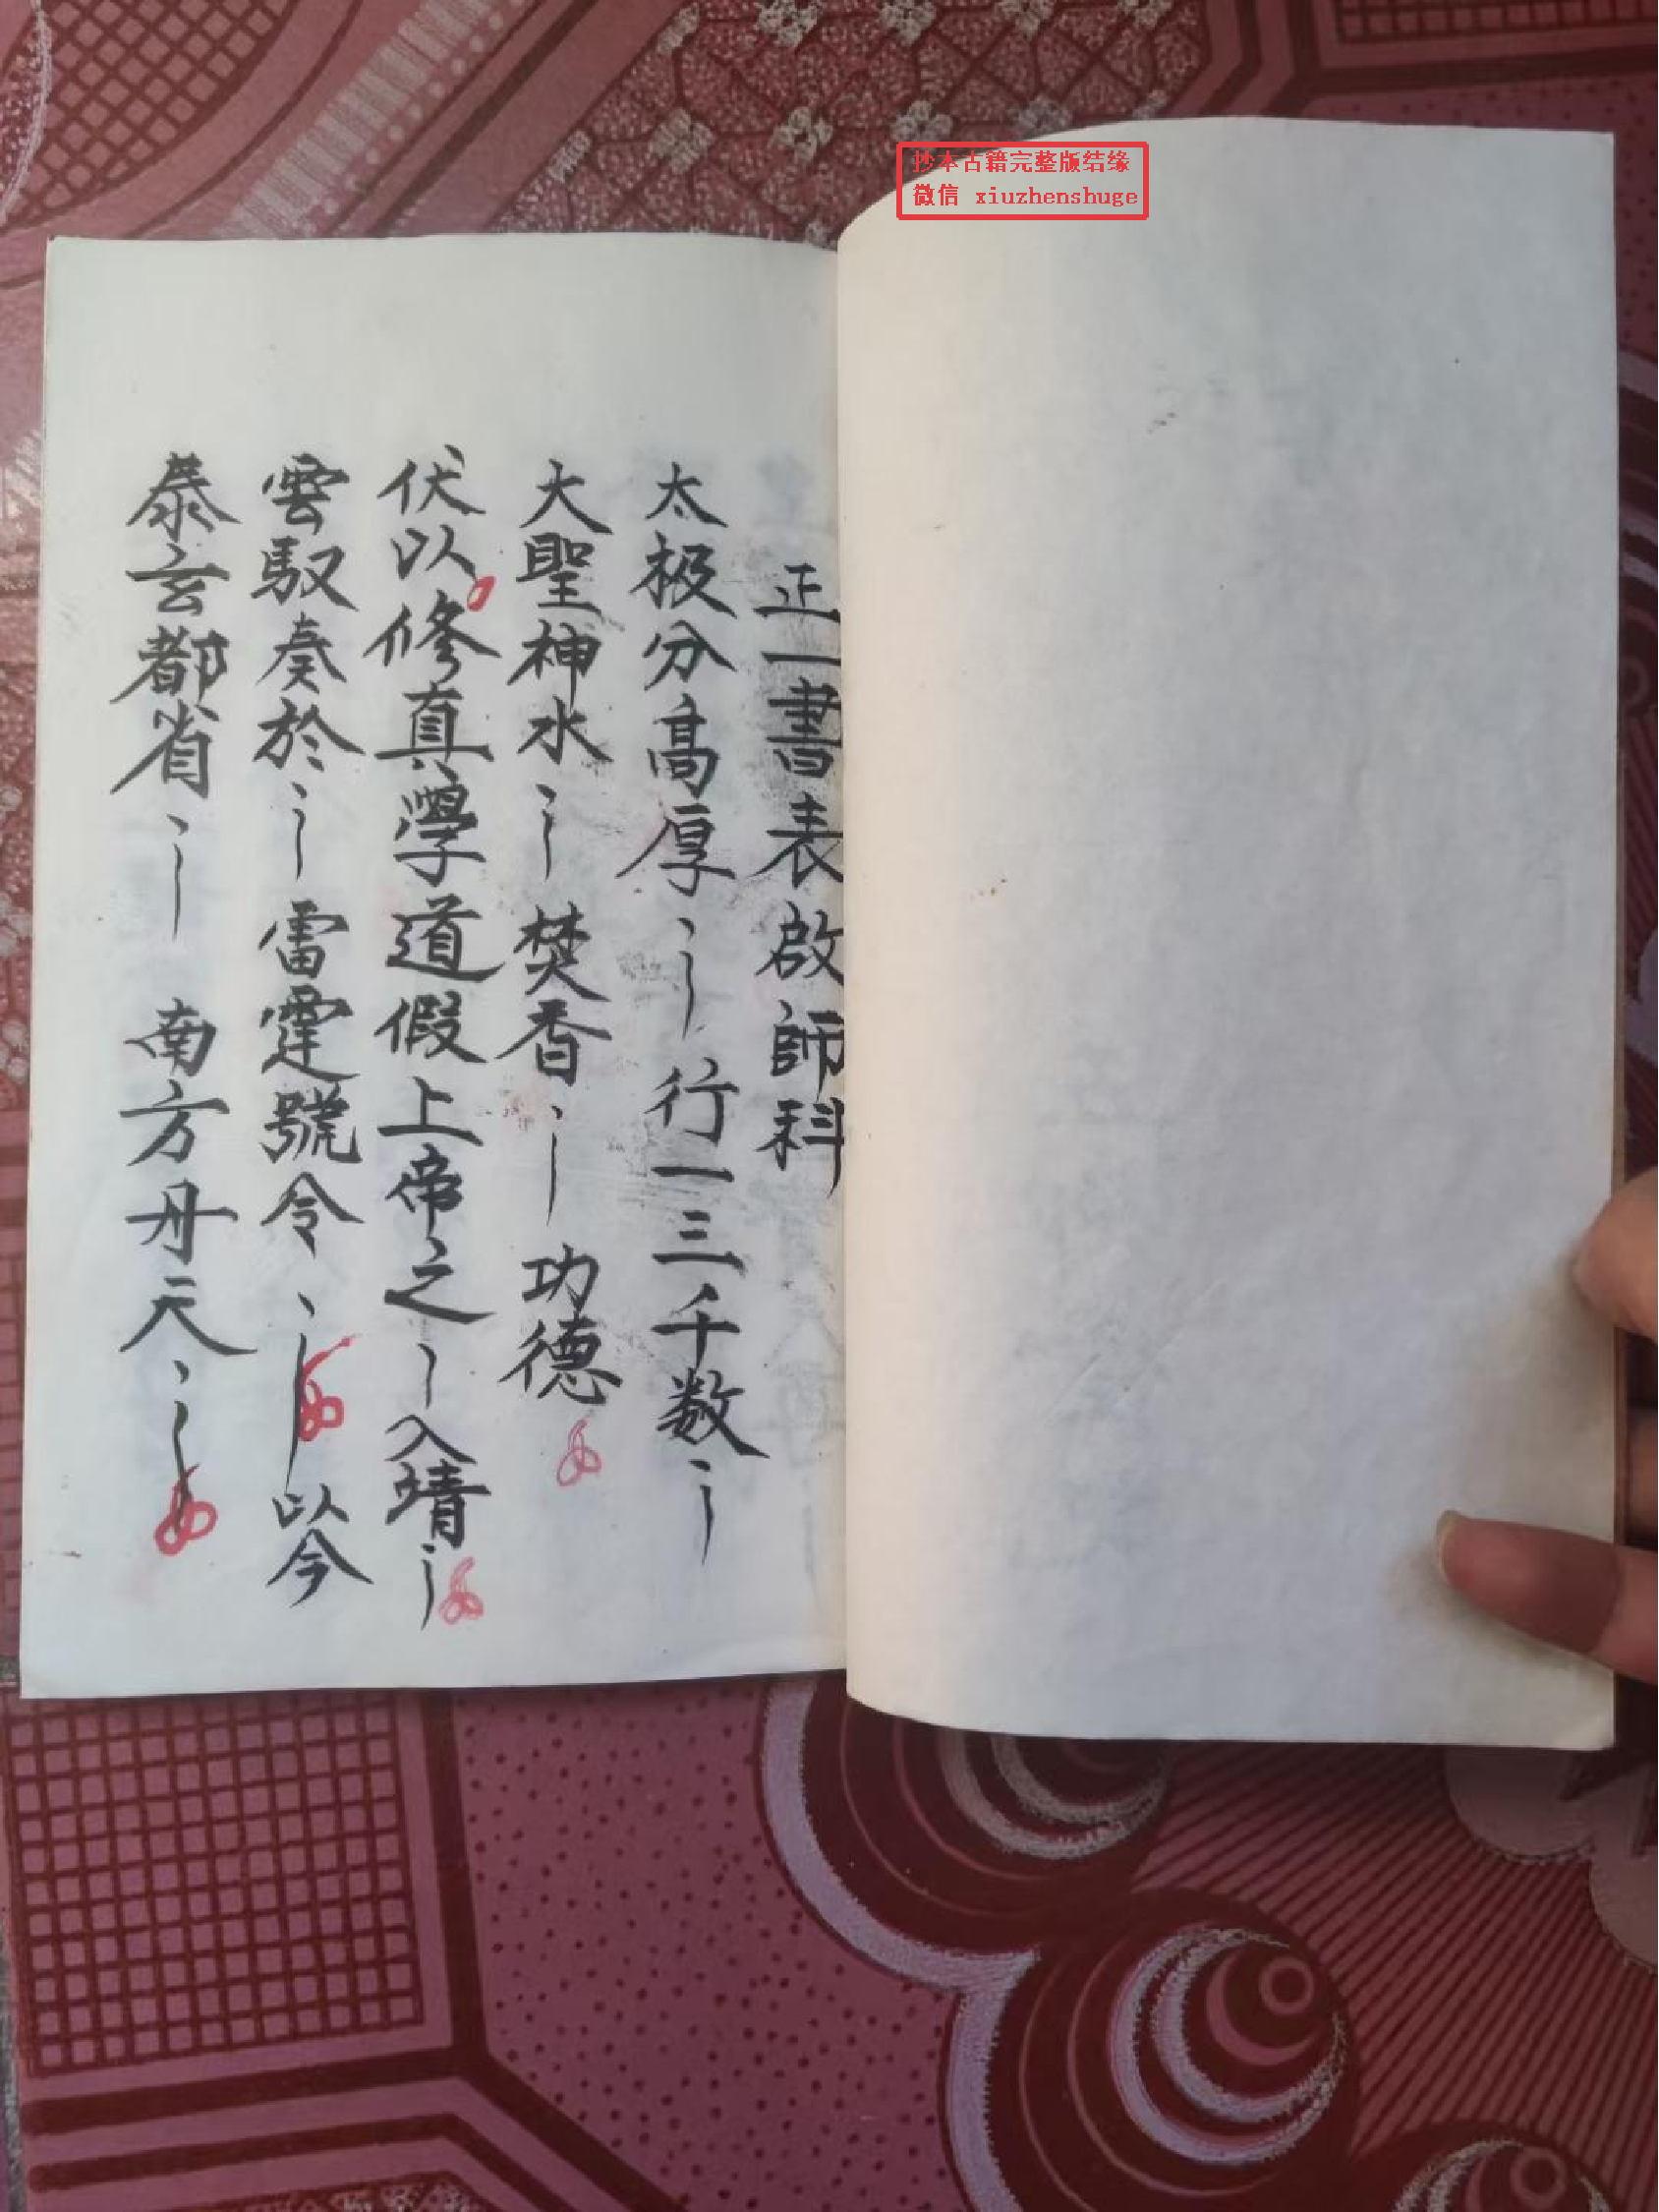 抄本古籍完整版结缘
微信 xiuzhenshuge
正一書表啟師科
太极分高厚〻〡行一三千数〻〡
大聖神水〻〡焚香〻〡功德
伏以修真學道假上帝之〡入靖〻〡
雲馭奏於〻〡雷霆號令〻〡以今
泰玄都省〻〡南方丹天〻〡